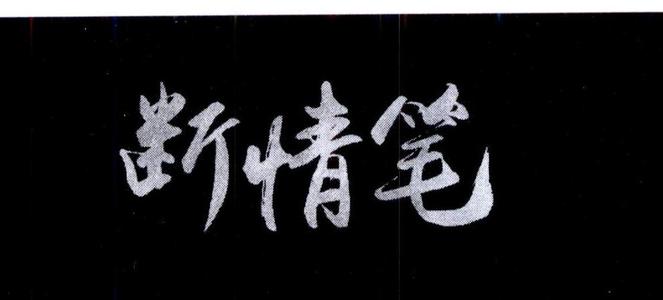 断情笔